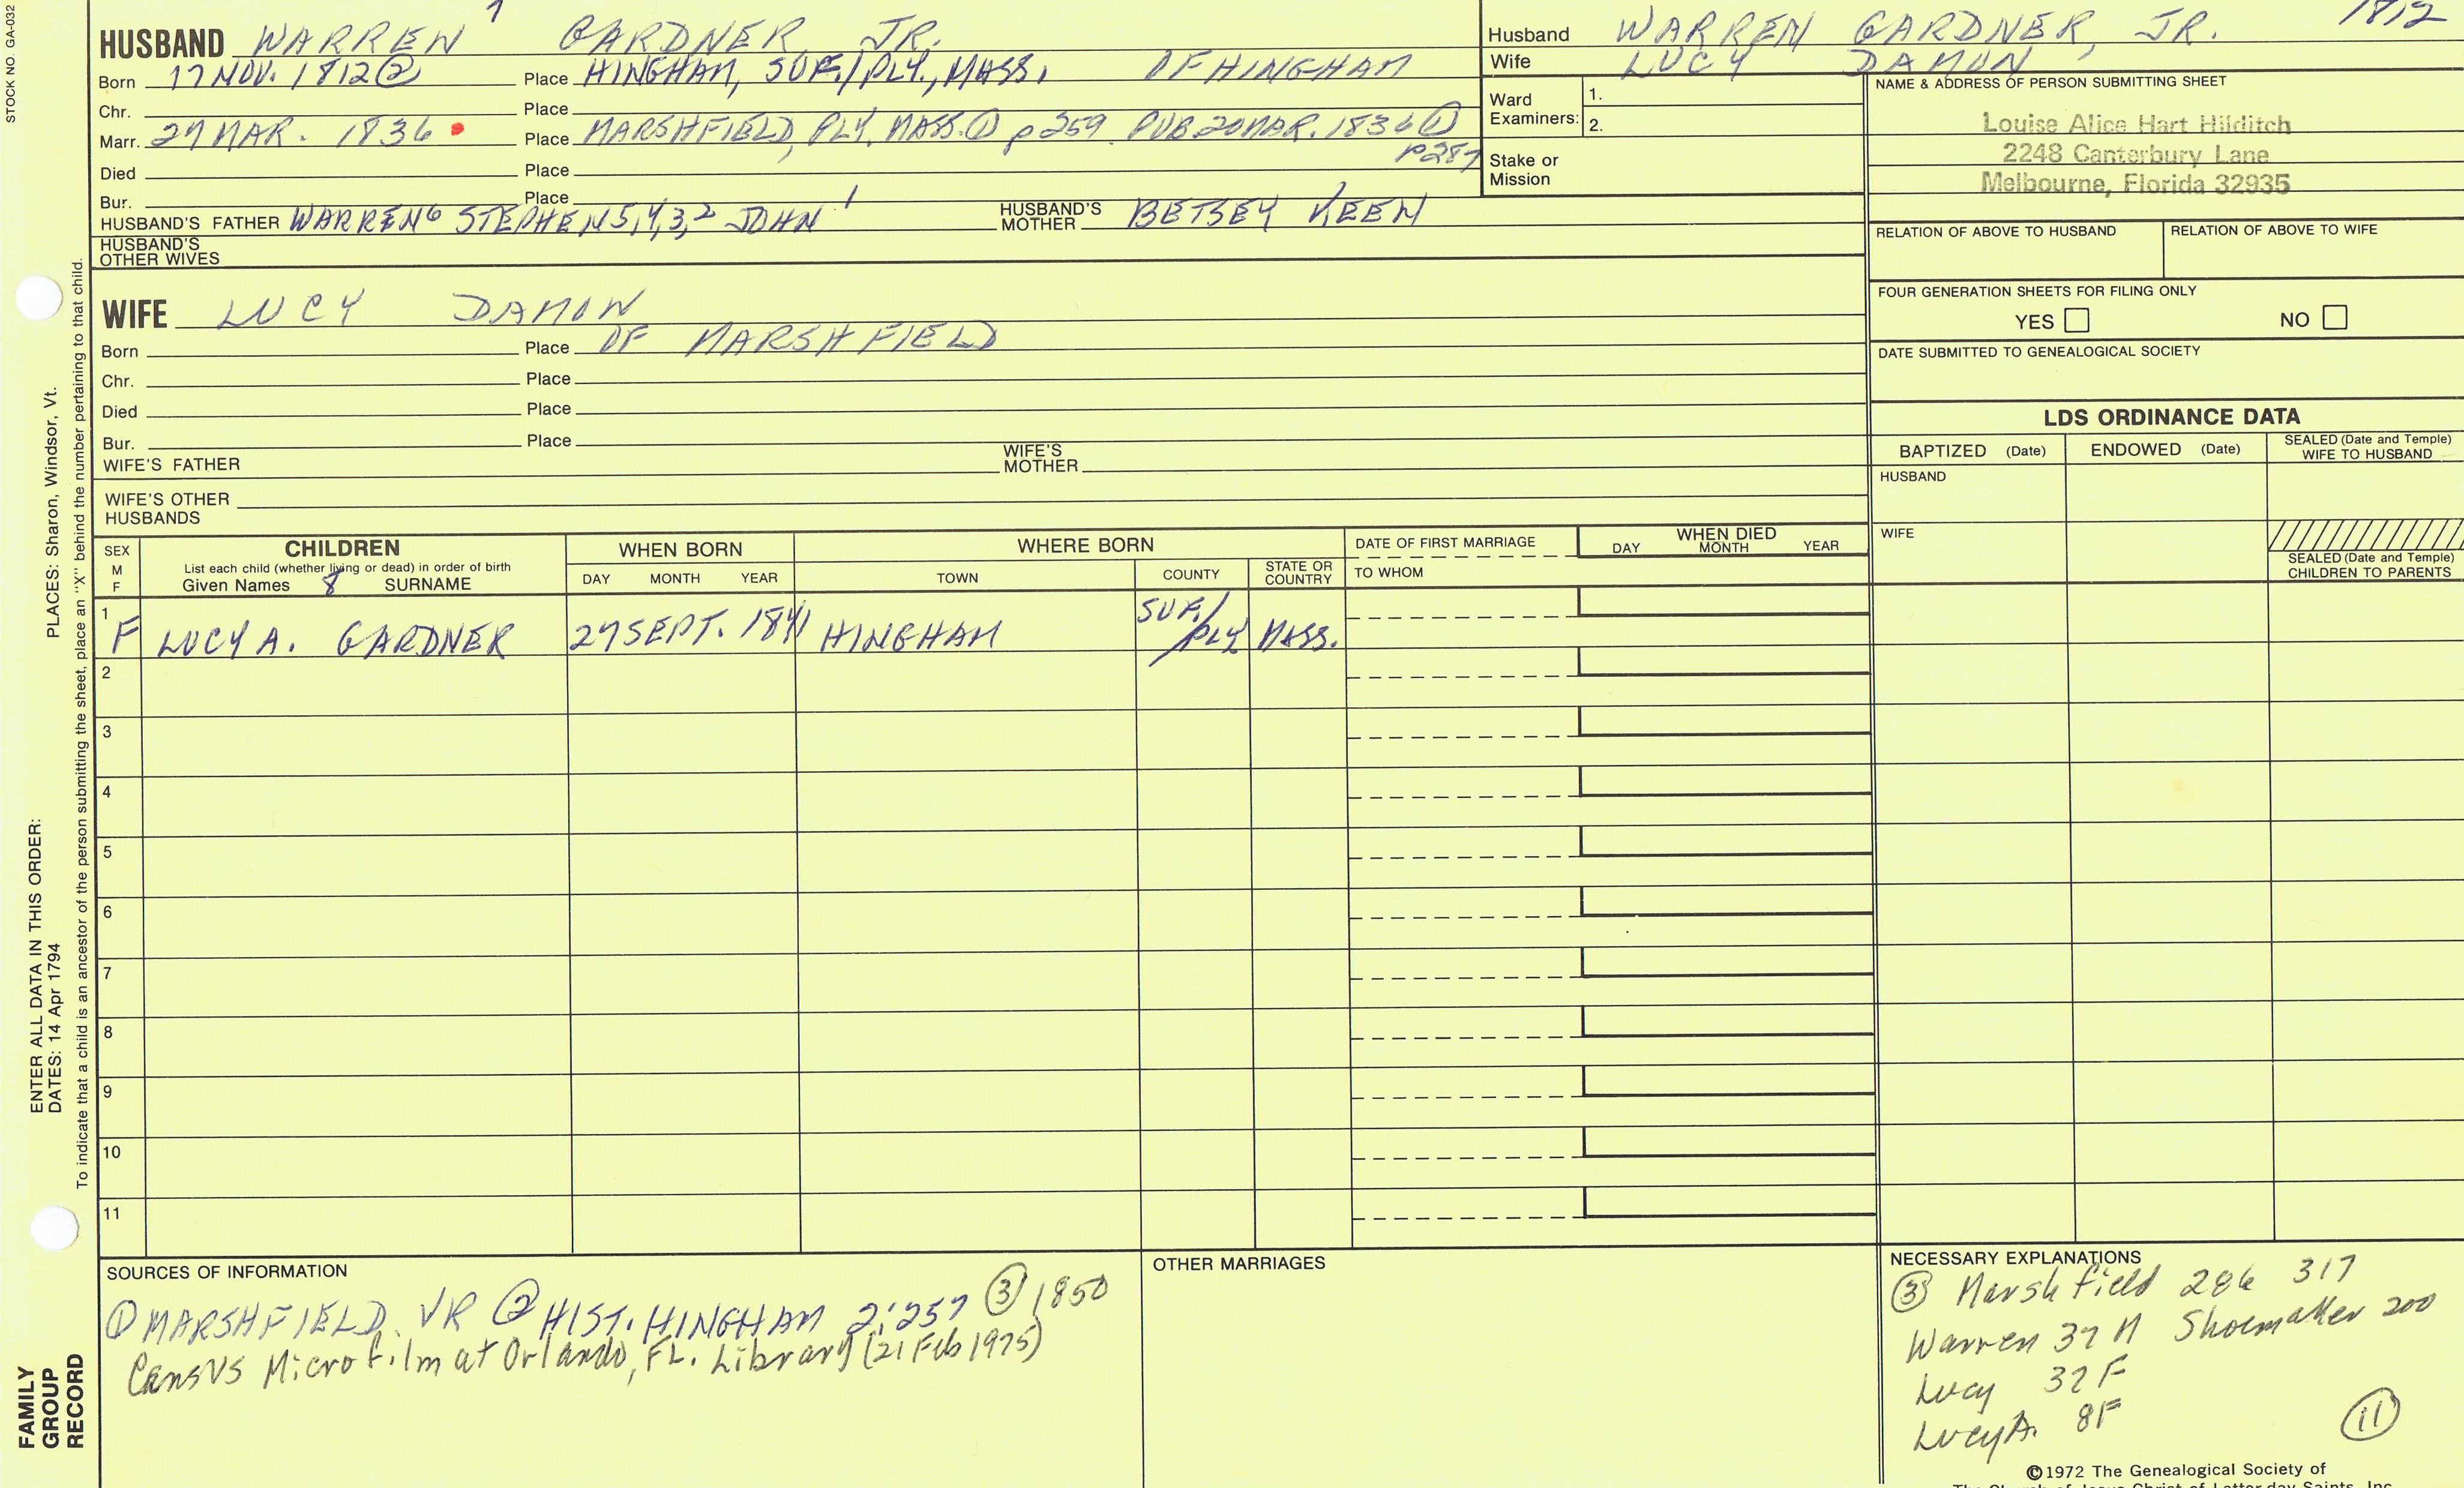 STOCK NO. GA-032
HUSBAND WARREN 7 GARDNER JR.
Born 17 NOV. 1812 ② Place HINGHAM, SUF./PLY., MASS. OF HINGHAM
Chr. Place
Marr. 27 MAR. 1836 Place MARSHFIELD, PLY. MASS. ① p259 PUB. 20 MAR. 1836 ①
p287
Died Place
Bur. Place
HUSBAND'S FATHER WARREN6 STEPHEN5,4,3,2 JOHN 1 HUSBAND'S MOTHER BETSEY KEEN
HUSBAND'S OTHER WIVES
WIFE LUCY DAMON
Born Place OF MARSHFIELD
Chr. Place
Died Place
Bur. Place
WIFE'S FATHER WIFE'S MOTHER
WIFE'S OTHER HUSBANDS
1812
Husband WARREN GARDNER, JR.
Wife LUCY DAMON
Ward Examiners: 1.
2.
Stake or Mission
NAME & ADDRESS OF PERSON SUBMITTING SHEET
Louise Alice Hart Hilditch
2248 Canterbury Lane
Melbourne, Florida 32935
RELATION OF ABOVE TO HUSBAND RELATION OF ABOVE TO WIFE
FOUR GENERATION SHEETS FOR FILING ONLY
YES NO
DATE SUBMITTED TO GENEALOGICAL SOCIETY
LDS ORDINANCE DATA
BAPTIZED (Date) ENDOWED (Date) SEALED (Date and Temple) WIFE TO HUSBAND
HUSBAND
WIFE
SEALED (Date and Temple) CHILDREN TO PARENTS
SEX M F
CHILDREN
List each child (whether living or dead) in order of birth
Given Names 8 SURNAME
WHEN BORN
DAY MONTH YEAR
WHERE BORN
TOWN COUNTY STATE OR COUNTRY
DATE OF FIRST MARRIAGE
TO WHOM
WHEN DIED
DAY MONTH YEAR
1 F LUCY A. GARDNER 27 SEPT. 1841 HINGHAM SUF./PLY MASS.
2
3
4
5
6
7
8
9
10
11
SOURCES OF INFORMATION
① MARSHFIELD VR ② HIST. HINGHAM 2:257 ③ 1850
CensUS Microfilm at Orlando, FL. Library (21 Feb 1975)
OTHER MARRIAGES
NECESSARY EXPLANATIONS
③ Marshfield 286 317
Warren 37 M Shoemaker 200
Lucy 32 F
Lucy A. 8 F
⑪
©1972 The Genealogical Society of
The Church of Jesus Christ of Latter-day Saints, Inc.
PLACES: Sharon, Windsor, Vt.
To indicate that a child is an ancestor of the person submitting the sheet, place an "X" behind the number pertaining to that child.
ENTER ALL DATA IN THIS ORDER:
DATES: 14 Apr 1794
FAMILY
GROUP
RECORD